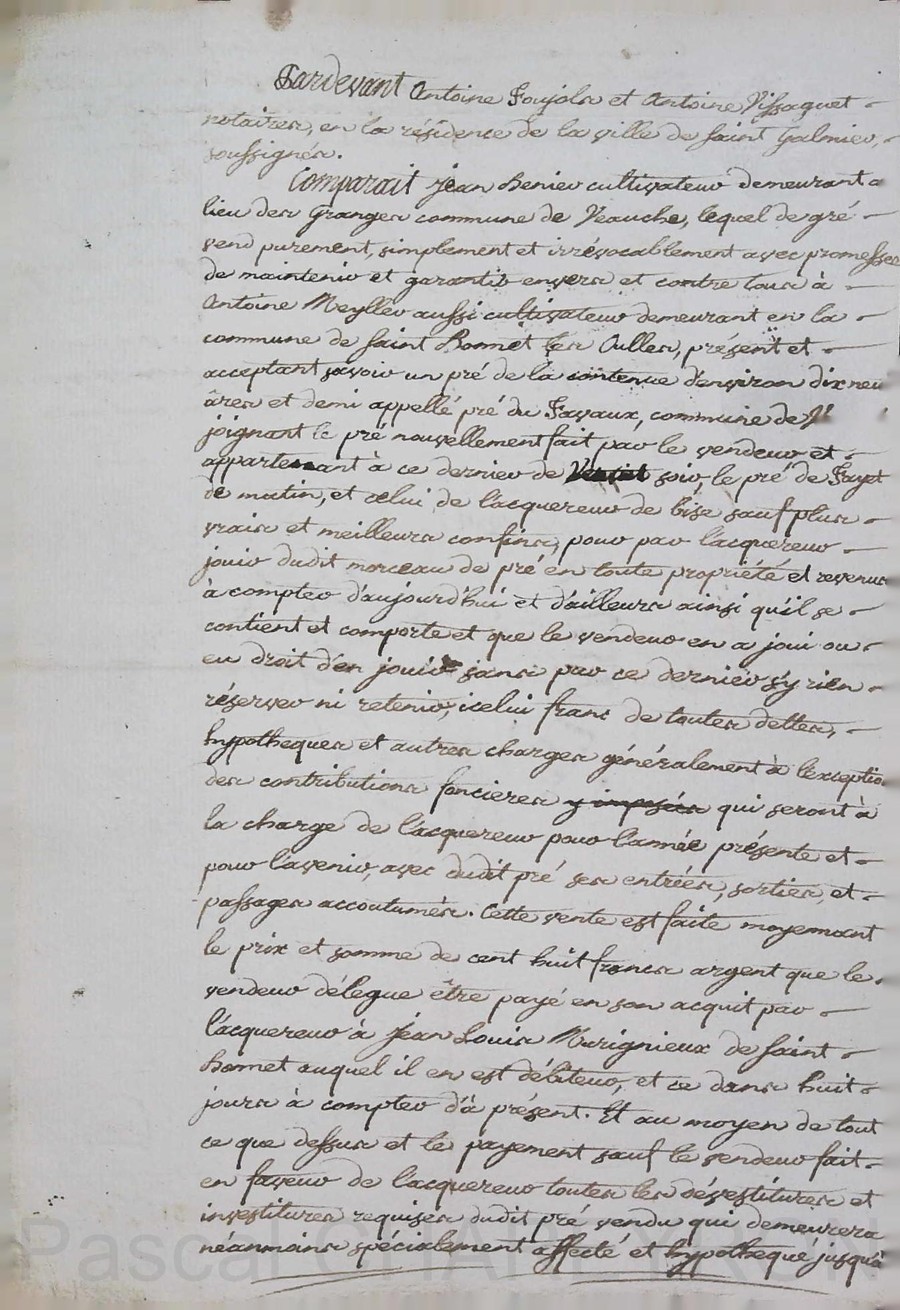 Pardevant Antoine Foujols et Antoine Vissaguet
notaires, en la résidence de la ville de saint Galmier,
soussignés.
Comparait jean henier cultivateur demeurant a
lieu des Granges commune de Veauche, lequel de gré
vend purement, simplement et irrévocablement avec promesses
de maintenir et garantir envers et contre tous à
Antoine Meyller aussi cultivateur demeurant en la
commune de saint Bonnet les Oulles, présent et
acceptant savoir un pré de la contenue d'environ dix neu
âres et demi appellé pré du Favaux, commune de
joignant le pré nouvellement fait par le vendeur et
appartenant à ce dernier de soir, le pré de Fayet
de matin, et celui de l'acquereur de bise sauf plus
vrais et meilleurs confins, pour par l'acquereur
jouir dudit morceau de pré en toute propriété et revenus
à compter d'aujourd'hui et d'ailleurs ainsi qu'il se
contient et comporte et que le vendeur en a joui ou
eu droit d'en jouir sans par ce dernier s'y rien
réserver ni retenir, icelui franc de toutes dettes,
hypotheques et autres charges généralement à l'exceptio
des contributions foncieres y imposées qui seront à
la charge de l'acquereur pour l'année présente et
pour l'avenir, avec dudit pré ses entrées, sorties, et
passages accoutumés. Cette vente est faite moyennant
le prix et somme de cent huit francs argent que le
vendeur délegue être payé en son acquit par
l'acquereur à jean Louis Marignieux de saint
Bonnet auquel il en est débiteur, et ce dans huit
jours à compter d'à présent. Et au moyen de tout
ce que dessus et le payement sauf le vendeur fait
en faveur de l'acquereur toutes les dévestitures et
investitures requises dudit pré vendu qui demeurera
néanmoins spécialement affecté et hypothequé jusqu'à
Pascal